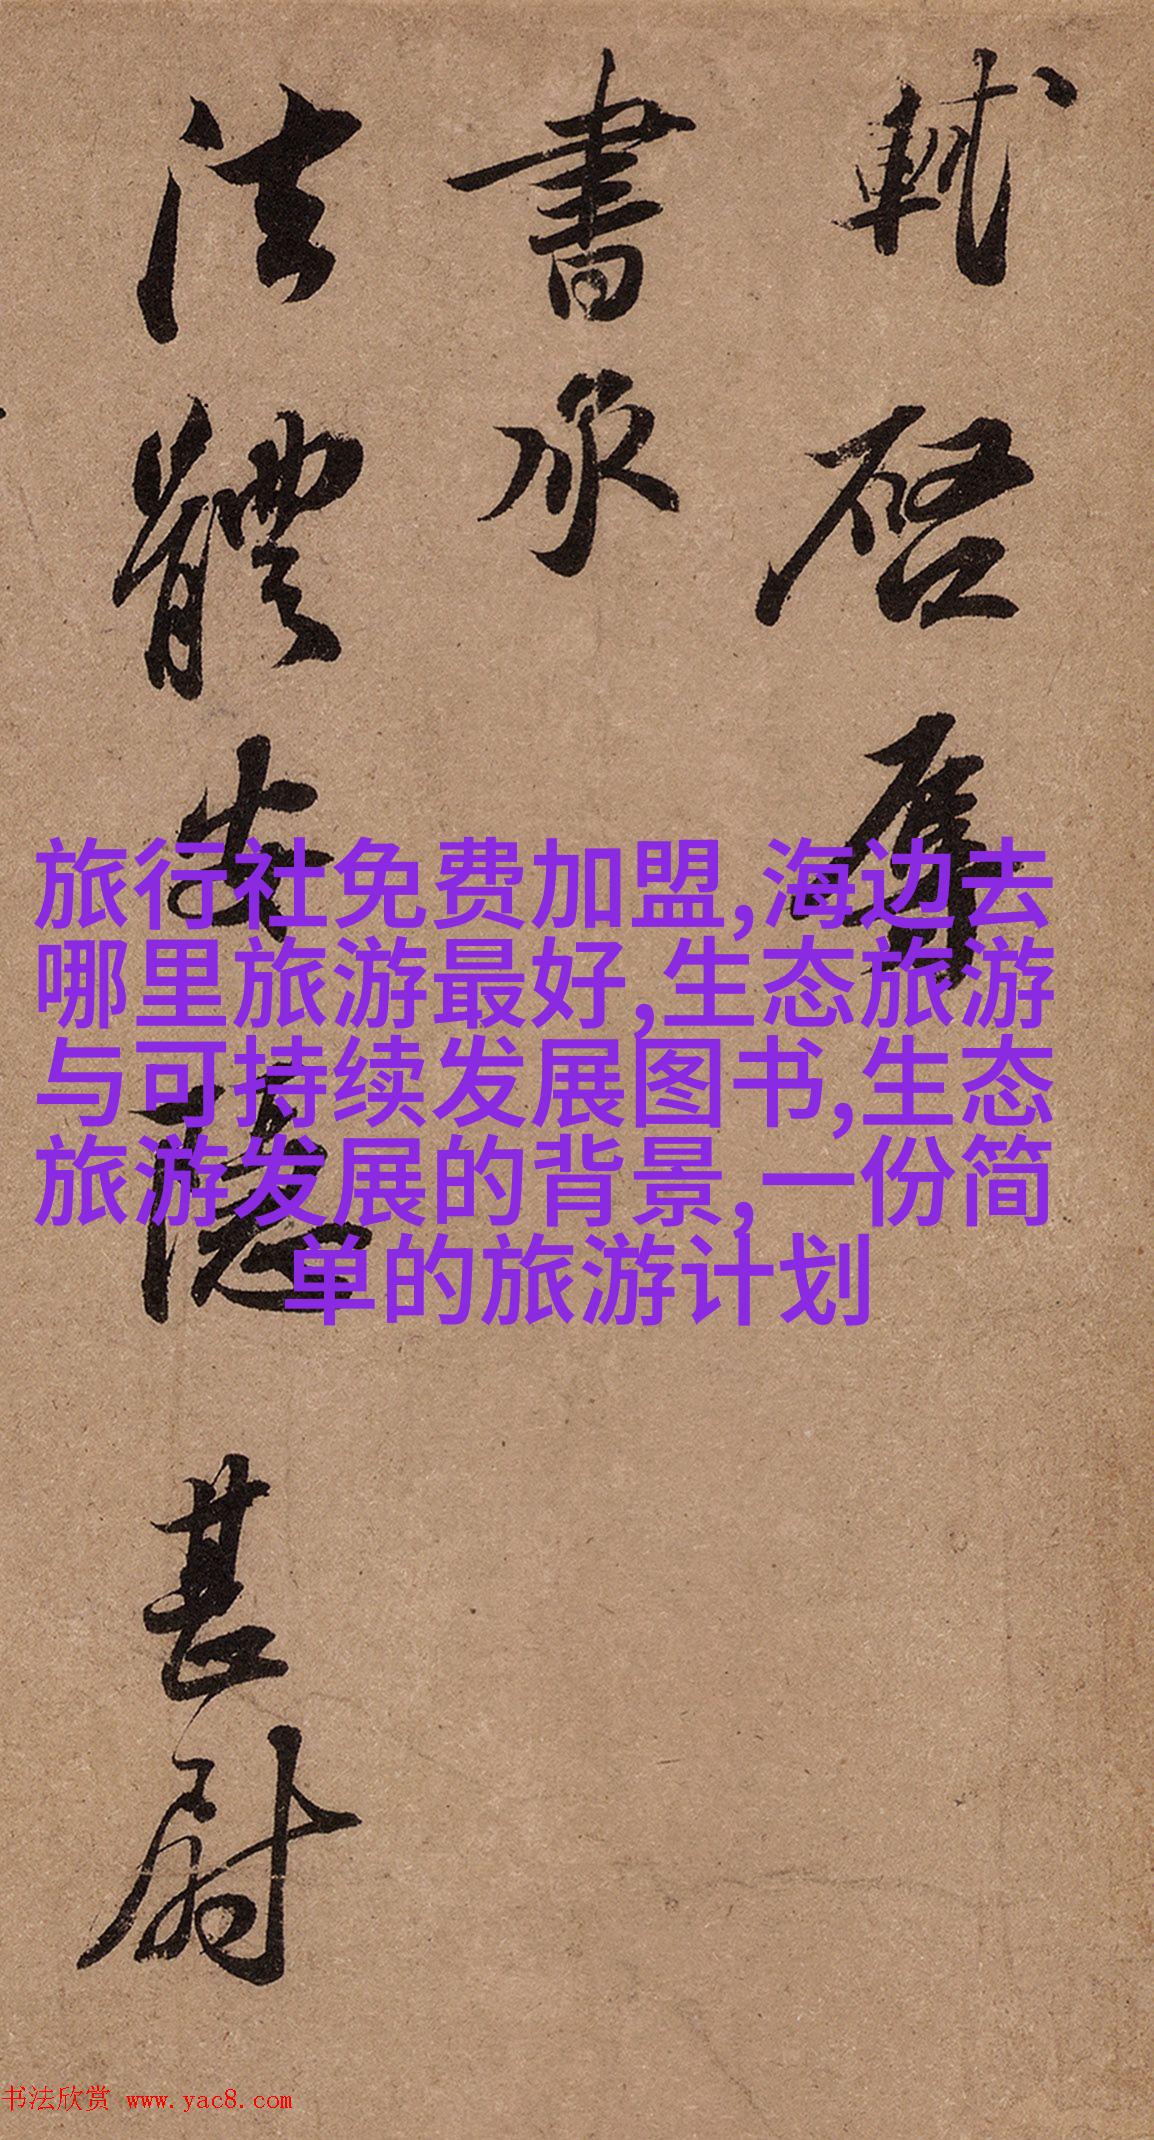 軾啓辱
書承
法體安隱甚尉
旅行社免费加盟,海边去
哪里旅游最好,生态旅游
与可持续发展图书,生态
旅游发展的背景,一份简
单的旅游计划
书法欣赏 www.yac8.com